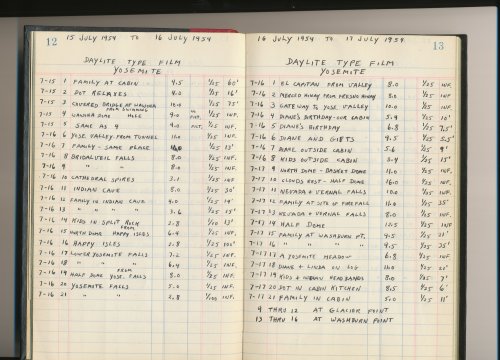 12 15 JULY 1954 TO 16 JULY 1954
DAYLITE TYPE FILM
YOSEMITE
7-15 1 FAMILY AT CABIN 4.5 1/25 60'
7-15 2 DOT RELAXES 4.0 1/25 16'
7-15 3 COVERED BRIDGE AT WAWONA 10.0 1/25 75'
7-15 4 WAWONA SWIMMING HOLE 4.0 1/25 INF.
7-15 5 SAME AS 4 4.0 1/25 INF.
7-16 6 YOSE. VALLEY FROM TUNNEL 11.0 1/25 INF.
7-16 7 FAMILY - SAME PLACE 1/25 13'
7-16 8 BRIDALVEIL FALLS 8.0 1/25 INF.
7-16 9 " " 8.0 1/25 INF.
7-16 10 CATHEDRAL SPIRES 7.2 1/25 INF.
7-16 11 INDIAN CAVE 8.0 1/25 30'
7-16 12 FAMILY IN INDIAN CAVE 4.0 1/25 14'
7-16 13 " " " 3.6 1/25 15'
7-16 14 KIDS IN SPLIT ROCK 2.8 1/100 13'
7-16 15 NORTH DOME FROM HAPPY ISLES 6.4 1/25 INF.
7-16 16 HAPPY ISLES 2.8 1/25 100'
7-16 17 LOWER YOSEMITE FALLS 7.2 1/25 INF.
7-16 18 " " " 6.4 1/25 INF.
7-16 19 HALF DOME FROM YOSE. FALLS 8.0 1/25 INF.
7-16 20 YOSEMITE FALLS 5.0 1/25 INF.
7-16 21 " " 2.8 1/100 INF.
16 JULY 1954 TO 17 JULY 1954 13
DAYLITE TYPE FILM
YOSEMITE
7-16 1 EL CAPITAN FROM VALLEY 8.0 1/25 INF
7-16 2 MERCED RIVER FROM 8.0 1/25 INF.
7-16 3 GATEWAY TO YOSE. VALLEY 10.0 1/25 INF.
7-16 4 DIANE'S BIRTHDAY - OUR CABIN 5.4 1/25 10'
7-16 5 DIANE'S BIRTHDAY 6.3 1/25 7.5'
7-16 6 DIANE AND GIFTS 4.5 1/25 5.5'
7-16 7 BABE OUTSIDE CABIN 5.6 1/25 9'
7-16 8 KIDS OUTSIDE CABIN 1/25 15'
7-17 9 NORTH DOME - BASKET DOME 11.0 1/25 INF.
7-17 10 CLOUDS REST - HALF DOME 16.0 1/25 INF.
7-17 11 NEVADA + VERNAL FALLS 10.0 1/25 INF.
7-17 12 FAMILY AT SITE OF FIREFALL 11.0 1/25 35'
7-17 13 NEVADA + VERNAL FALLS 8.0 1/25 INF.
7-17 14 HALF DOME 12.5 1/25 INF.
7-17 15 FAMILY AT WASHBURN PT. 4.5 1/25 21'
7-17 16 " " " " 4.5 1/25 35'
7-17 17 A YOSEMITE MEADOW 6.8 1/25 INF.
7-17 18 DIANE + LINDA ON LOG 11.0 1/25 20'
7-17 19 KIDS + INDIAN HEADBANDS 8.0 1/25 7'
7-17 20 DOT IN CABIN KITCHEN 8.5 1/25 6'
7-17 21 FAMILY IN CABIN 5.0 1/25 11'
9 THRU 12 AT GLACIER POINT
13 THRU 16 AT WASHBURN POINT